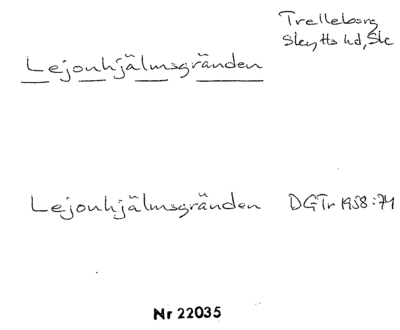 Trelleborg
Skytts hd, Sk
Lejonhjälmsgränden
Lejonhjälmsgränden DGTr 1958:74
Nr 22035